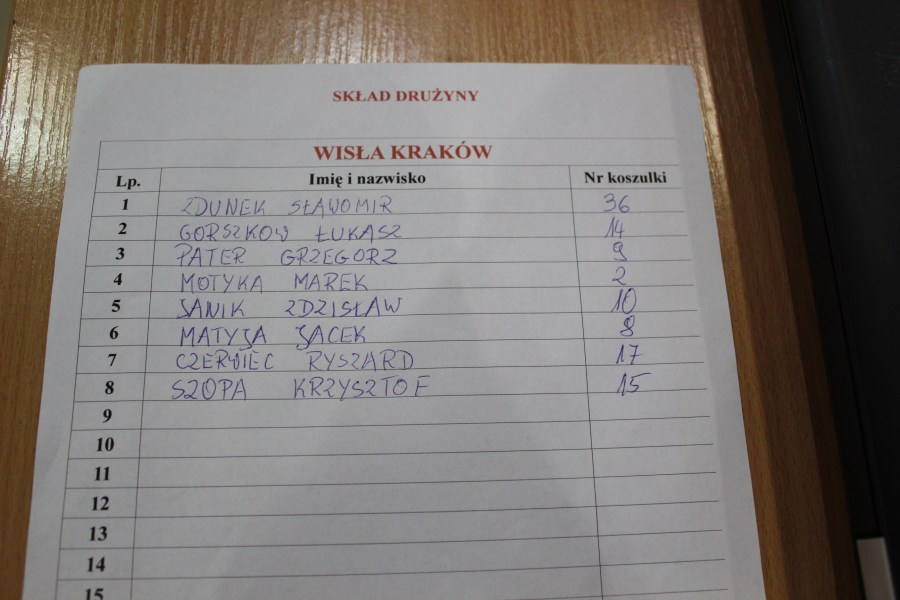 SKŁAD DRUŻYNY
WISŁA KRAKÓW
Lp. Imię i nazwisko Nr koszulki
1 ZDUNEK SŁAWOMIR 36
2 GORSZKOW ŁUKASZ 14
3 PATER GRZEGORZ 9
4 MOTYKA MAREK 2
5 JANIK ZDZISŁAW 10
6 MATYJA JACEK 8
7 CZERWIEC RYSZARD 17
8 SZOPA KRZYSZTOF 15
9
10
11
12
13
14
15